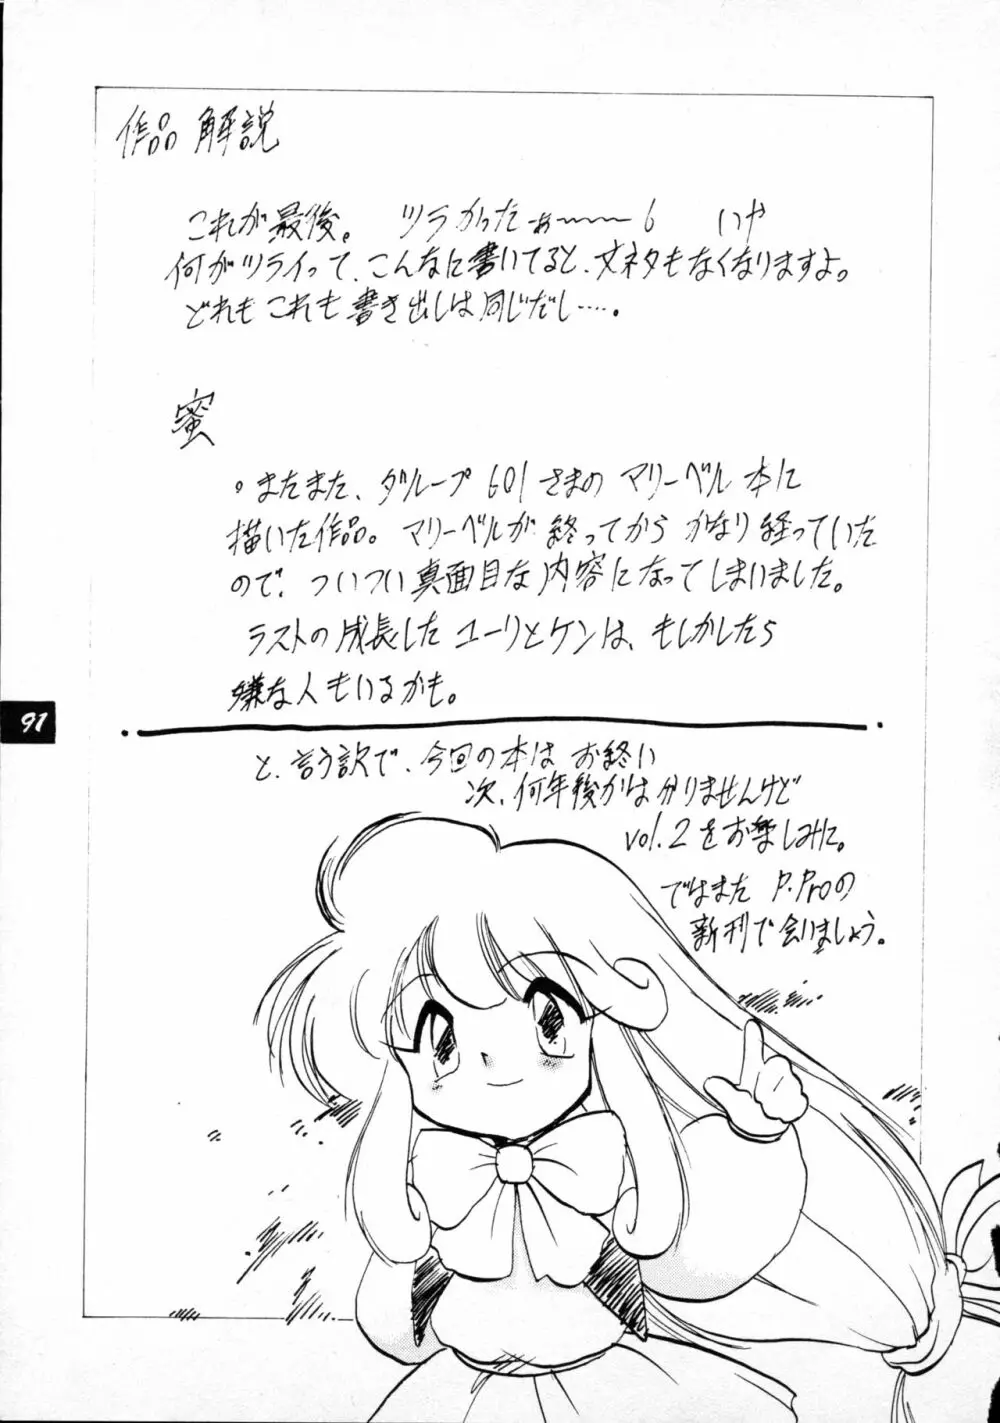 作品 解説
これが最後。 ツラかったぁ〜〜〜。 いや
何がツライって、こんなに書いてると、文ネタもなくなりますよ。
どれもこれも書き出しは同じだし‥‥。
蜜
。またまた、グループ601さまのマリーベル本に
描いた作品。マリーベルが終ってからかなり経っていた
ので、ついつい真面目な内容になってしまいました。
ラストの成長したユーリとケンは、もしかしたら
嫌な人もいるかも。
91
と、言う訳で、今回の本はお終い
次、何年後かは分りませんけど
vol.2をお楽しみに。
ではまた P.Proの
新刊で会いましょう。